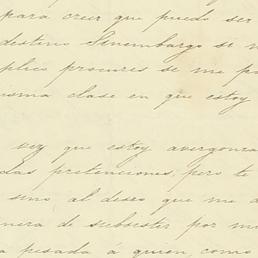 para creer que puedo ser
destino Sinembargo si
plico procures se me
misma clase en que estoy
vez que estoy avergonza
das pretenciones, pero te
sino al deseo que me
nera de subsistir por mi
a pesada á quien, como